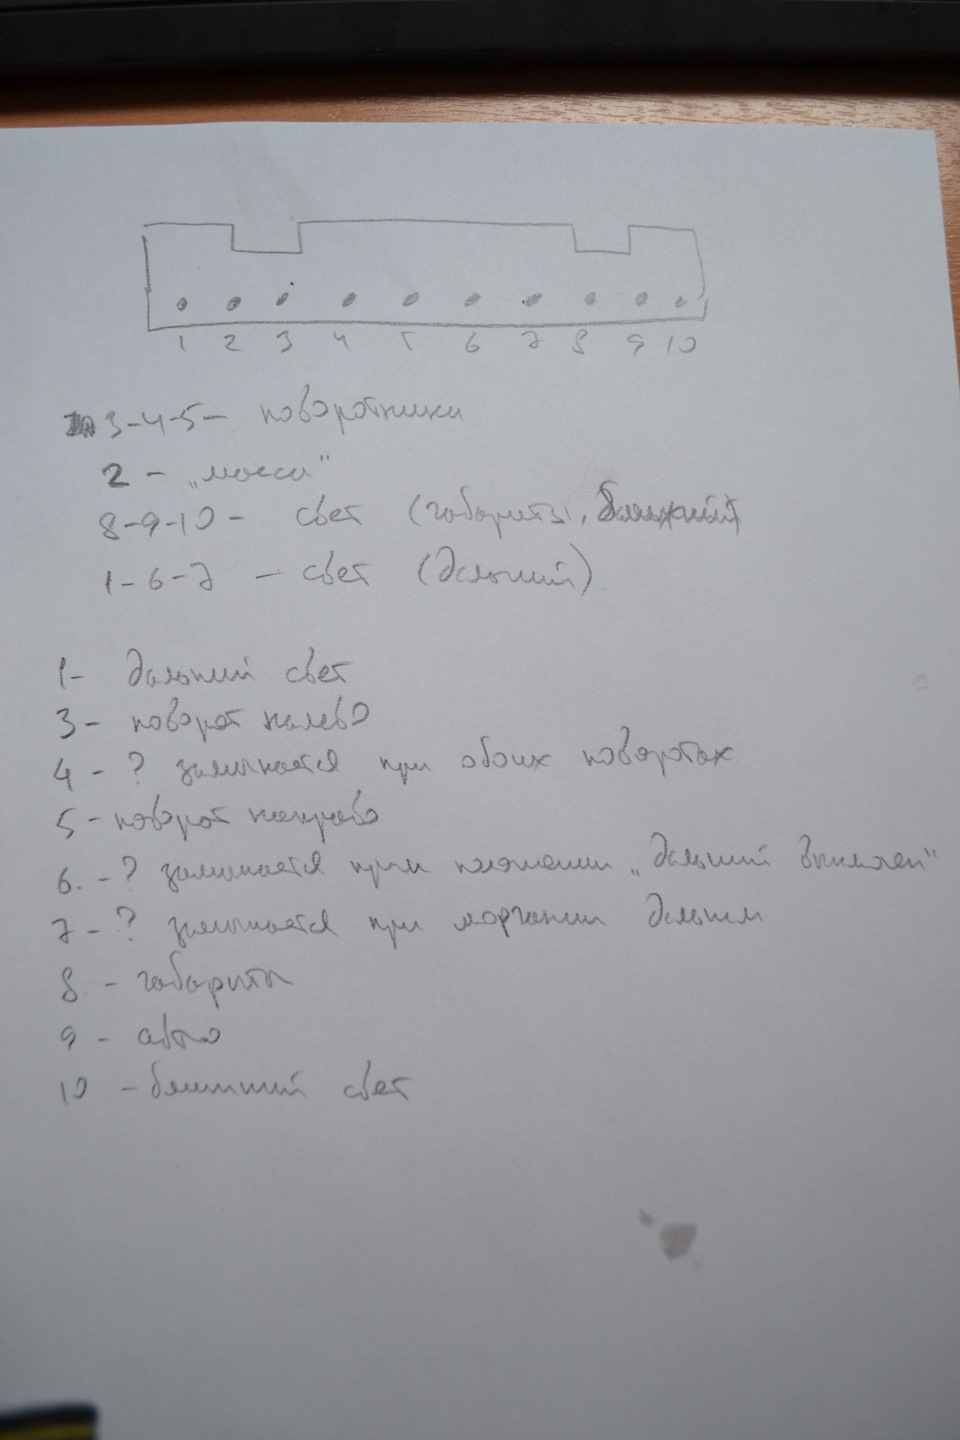 1 2 3 4 5 6 7 8 9 10
3-4-5- поворотники
2 - „масса"
8-9-10 - свет (габариты, ближний)
1-6-7 - свет (дальний)
1- дальний свет
3- поворот налево
4 - ? замыкается при обоих поворотах
5 - поворот направо
6. - ? замыкается при положении „дальний выключен"
7 - ? замыкается при моргании дальним
8 - габариты
9 - авто
10 - ближний свет